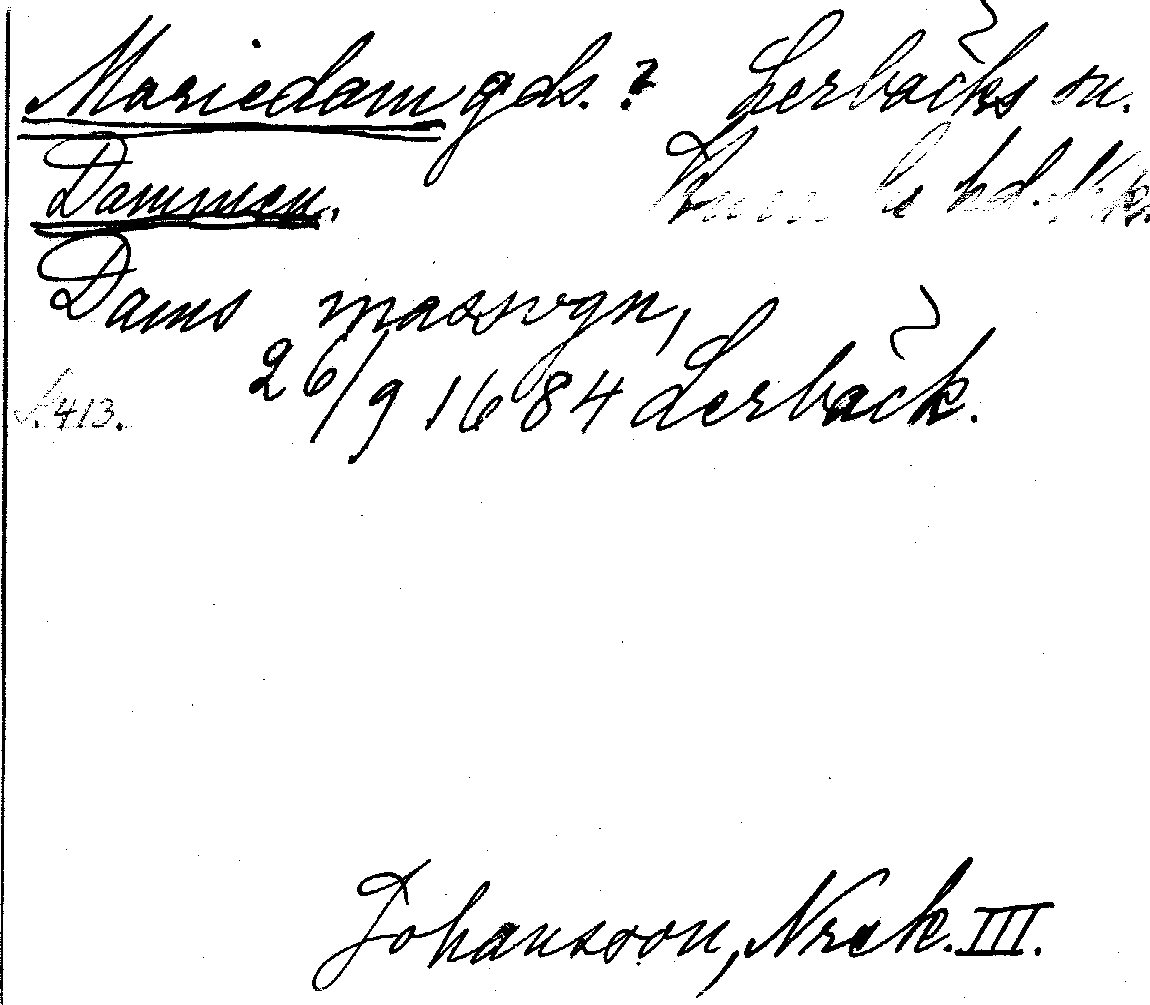 Mariedam gds. ? Lerbäcks sn.
Dammen. Kumla hd. Nk.
Dams massvgn,
26/9 1684 Lerbäck.
S. 413.
Johansson, Nrck. III.